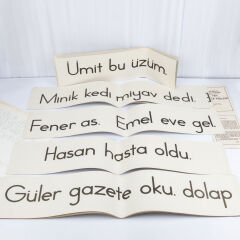 Ümit bu üzüm.
Minik kedi miyav dedi.
Fener as. Emel eve gel.
Hasan hasta oldu.
Güler gazete oku. dolap